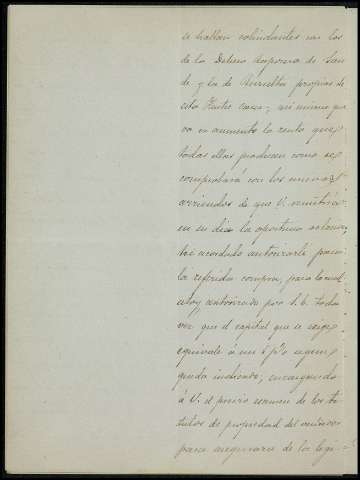 se hallan colindantes con los
de la Dehesa
de y los de propias de
esta Ilustre Casa; así mismo que
va en aumento la renta que
todas ellas producen como se
comprobará con los nuevos
arriendos de que V. remitirá
en su día la oportuna
he acordado autorizarle para
la referida compra, para lo cual
estoy autorizado por S. E. toda
vez que el capital que se exige
equivale á un 6 p% según
queda indicado; encargando
á V. el previo examen de los tí
tulos de propiedad del
para asegurarse de la legi-